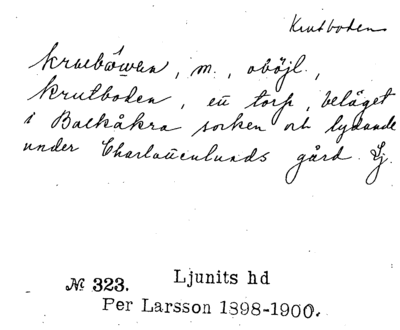 Krutboden
kruebówen, m., oböjl.,
Krutboden, eñ torp, beläget
i Balkåkra socken och lydande
under Charlotteñlunds gård. Lj.
№ 323. Ljunits hd
Per Larsson 1898-1900.